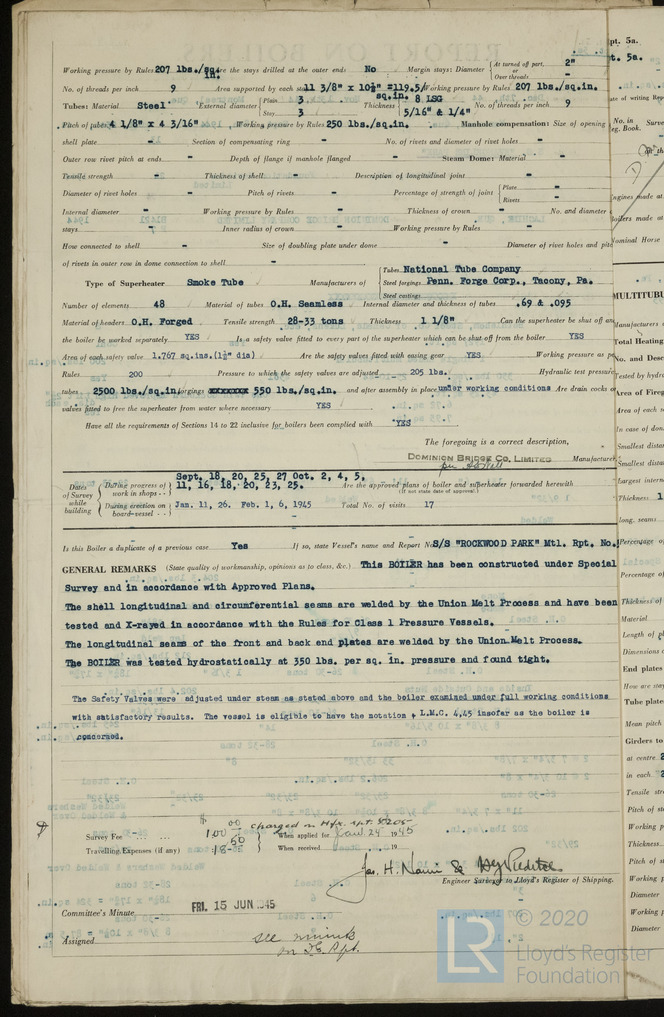 Working pressure by Rules 207 lbs./sq.in. Are the stays drilled at the outer ends No Margin stays: Diameter { At turned off part, 2" or Over threads -
No. of threads per inch 9 Area supported by each stay 11 3/8" x 10½" =119.5/sq.in. Working pressure by Rules 207 lbs./sq.in.
Tubes: Material Steel External diameter { Plain 3 Stay 3 Thickness { 8 LSG 5/16" & 1/4" No. of threads per inch 9
Pitch of tubes 4 1/8" x 4 3/16" Working pressure by Rules 250 lbs./sq.in. Manhole compensation: Size of opening
shell plate - Section of compensating ring - No. of rivets and diameter of rivet holes -
Outer row rivet pitch at ends - Depth of flange if manhole flanged - Steam Dome: Material -
Tensile strength - Thickness of shell - Description of longitudinal joint -
Diameter of rivet holes - Pitch of rivets - Percentage of strength of joint { Plate - Rivets -
Internal diameter - Working pressure by Rules - Thickness of crown - No. and diameter
stays - Inner radius of crown - Working pressure by Rules -
How connected to shell - Size of doubling plate under dome - Diameter of rivet holes and pitch
of rivets in outer row in dome connection to shell -
Type of Superheater Smoke Tube Manufacturers of { Tubes National Tube Company
Steel forgings Penn. Forge Corp., Tacony, Pa.
Steel castings
Number of elements 48 Material of tubes O.H. Seamless Internal diameter and thickness of tubes .69 & .095
Material of headers O.H. Forged Tensile strength 28-33 tons Thickness 1 1/8" Can the superheater be shut off and
the boiler be worked separately YES Is a safety valve fitted to every part of the superheater which can be shut off from the boiler YES
Area of each safety valve 1.767 sq.ins.(1½" dia) Are the safety valves fitted with easing gear YES Working pressure as per
Rules 200 Pressure to which the safety valves are adjusted 205 lbs. Hydraulic test pressure
tubes 2500 lbs./sq.in. forgings xxxxxxxx 550 lbs./sq.in. and after assembly in place under working conditions Are drain cocks or
valves fitted to free the superheater from water where necessary YES
Have all the requirements of Sections 14 to 22 inclusive for boilers been complied with YES
The foregoing is a correct description,
DOMINION BRIDGE CO. LIMITED Manufacturer
per
Dates of Survey while building { During progress of work in shops - - Sept, 18, 20, 25, 27 Oct. 2, 4, 5, 11, 16, 18, 20, 23, 25. Are the approved plans of boiler and superheater forwarded herewith
(If not state date of approval.)
During erection on board vessel - - Jan. 11, 26. Feb. 1, 6, 1945 Total No. of visits 17
Is this Boiler a duplicate of a previous case Yes If so, state Vessel's name and Report No. S/S "ROCKWOOD PARK" Mtl. Rpt. No.
GENERAL REMARKS (State quality of workmanship, opinions as to class, &c.) This BOILER has been constructed under Special
Survey and in accordance with Approved Plans.
The shell longitudinal and circumferential seams are welded by the Union Melt Process and have been
tested and X-rayed in accordance with the Rules for Class 1 Pressure Vessels.
The longitudinal seams of the front and back end plates are welded by the Union Melt Process.
The BOILER was tested hydrostatically at 350 lbs. per sq. in. pressure and found tight.
The Safety Valves were adjusted under steam as stated above and the boiler examined under full working conditions
with satisfactory results. The vessel is eligible to have the notation + L.M.C. 4,45 insofar as the boiler is
concerned.
Survey Fee ... ... 100 00 charged on Mfr. rpt. 5205 When applied for Jan 24 1945
Travelling Expenses (if any) 18-50 When received 19
Jas. H. Nairn &
Engineer Surveyor to Lloyd's Register of Shipping.
Committee's Minute FRI. 15 JUN 1945
Assigned see minute
on F.E. Rpt.
© 2020
LR Lloyd's Register
Foundation
pt. 5a.
t. 5a.
No. in
Reg. Book.
Engines made at
Boilers made at
Nominal Horse
MULTITUB
Manufacturers
Total Heating
No. and Desc
Tested by hydr
Area of Fireg
Area of each
In case of don
Smallest dista
Smallest dista
Largest intern
Thickness
long. seams
Percentage o
Percentage of
Thickness of
Material
Length of
Dimensions
End plates
How are stay
Tube plates
Mean pitch
Girders to
at centre
in each
Tensile stre
Pitch of st
Working p
Thickness
Pitch of st
Working p
Diameter
Working p
Diameter